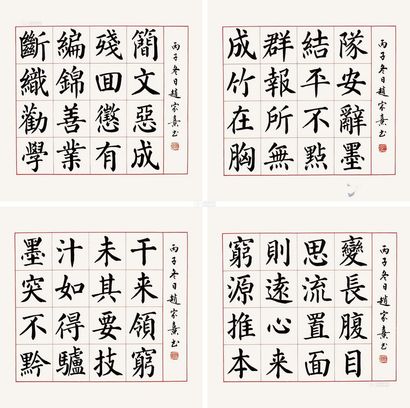 斷編殘簡
織錦囬文
勸善懲惡
學業有成
丙子冬日趙家熹书
成群結隊
竹報平安
在所不辭
胸無點墨
丙子冬日趙家熹书
墨汁未干
突如其来
不得要領
黔驢技窮
丙子冬日趙家熹书
窮則思變
源遠流長
推心置腹
本来面目
丙子冬日趙家熹书